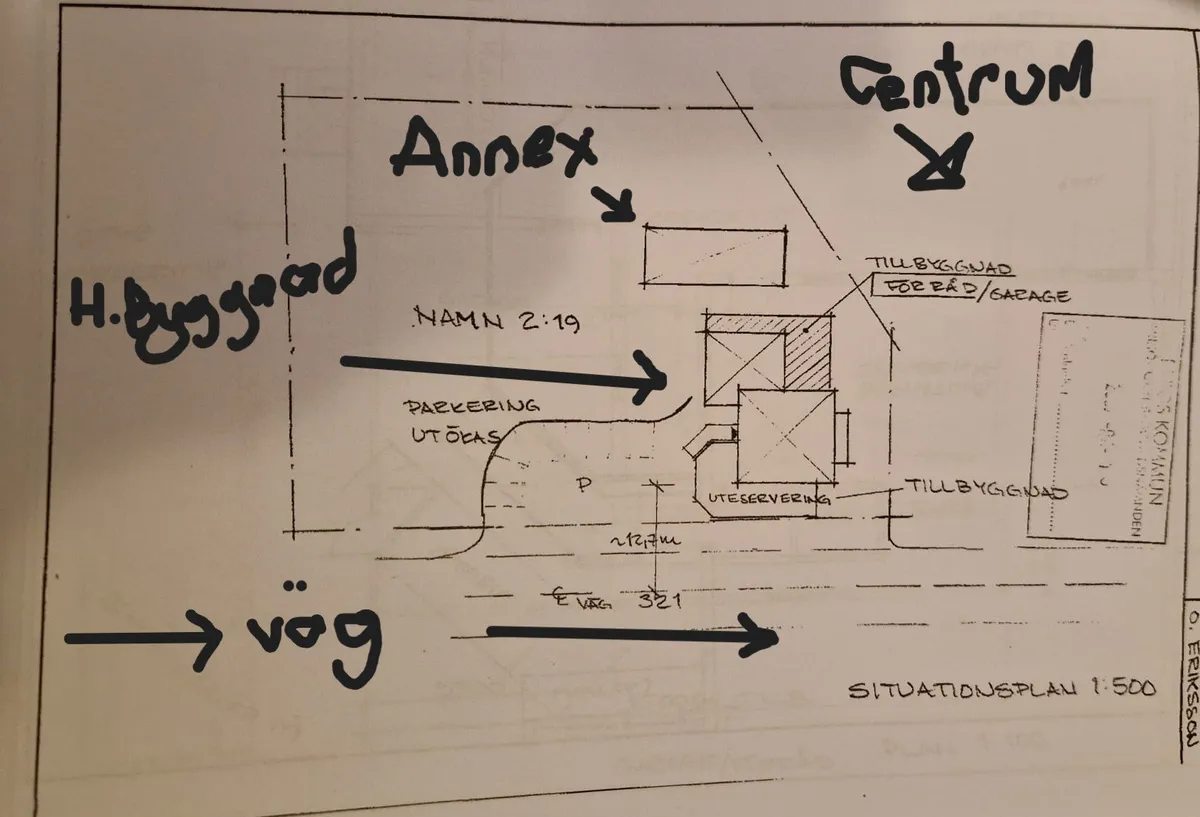 Centrum
Annex
H.Byggnad
TILLBYGGNAD
FÖRRÅD/GARAGE
NAMN 2:19
PARKERING
UTÖKAS
P
UTESERVERING
TILLBYGGNAD
~12,7m
VÄG 321
väg
SITUATIONSPLAN 1:500
KOMMUN
O. ERIKSSON